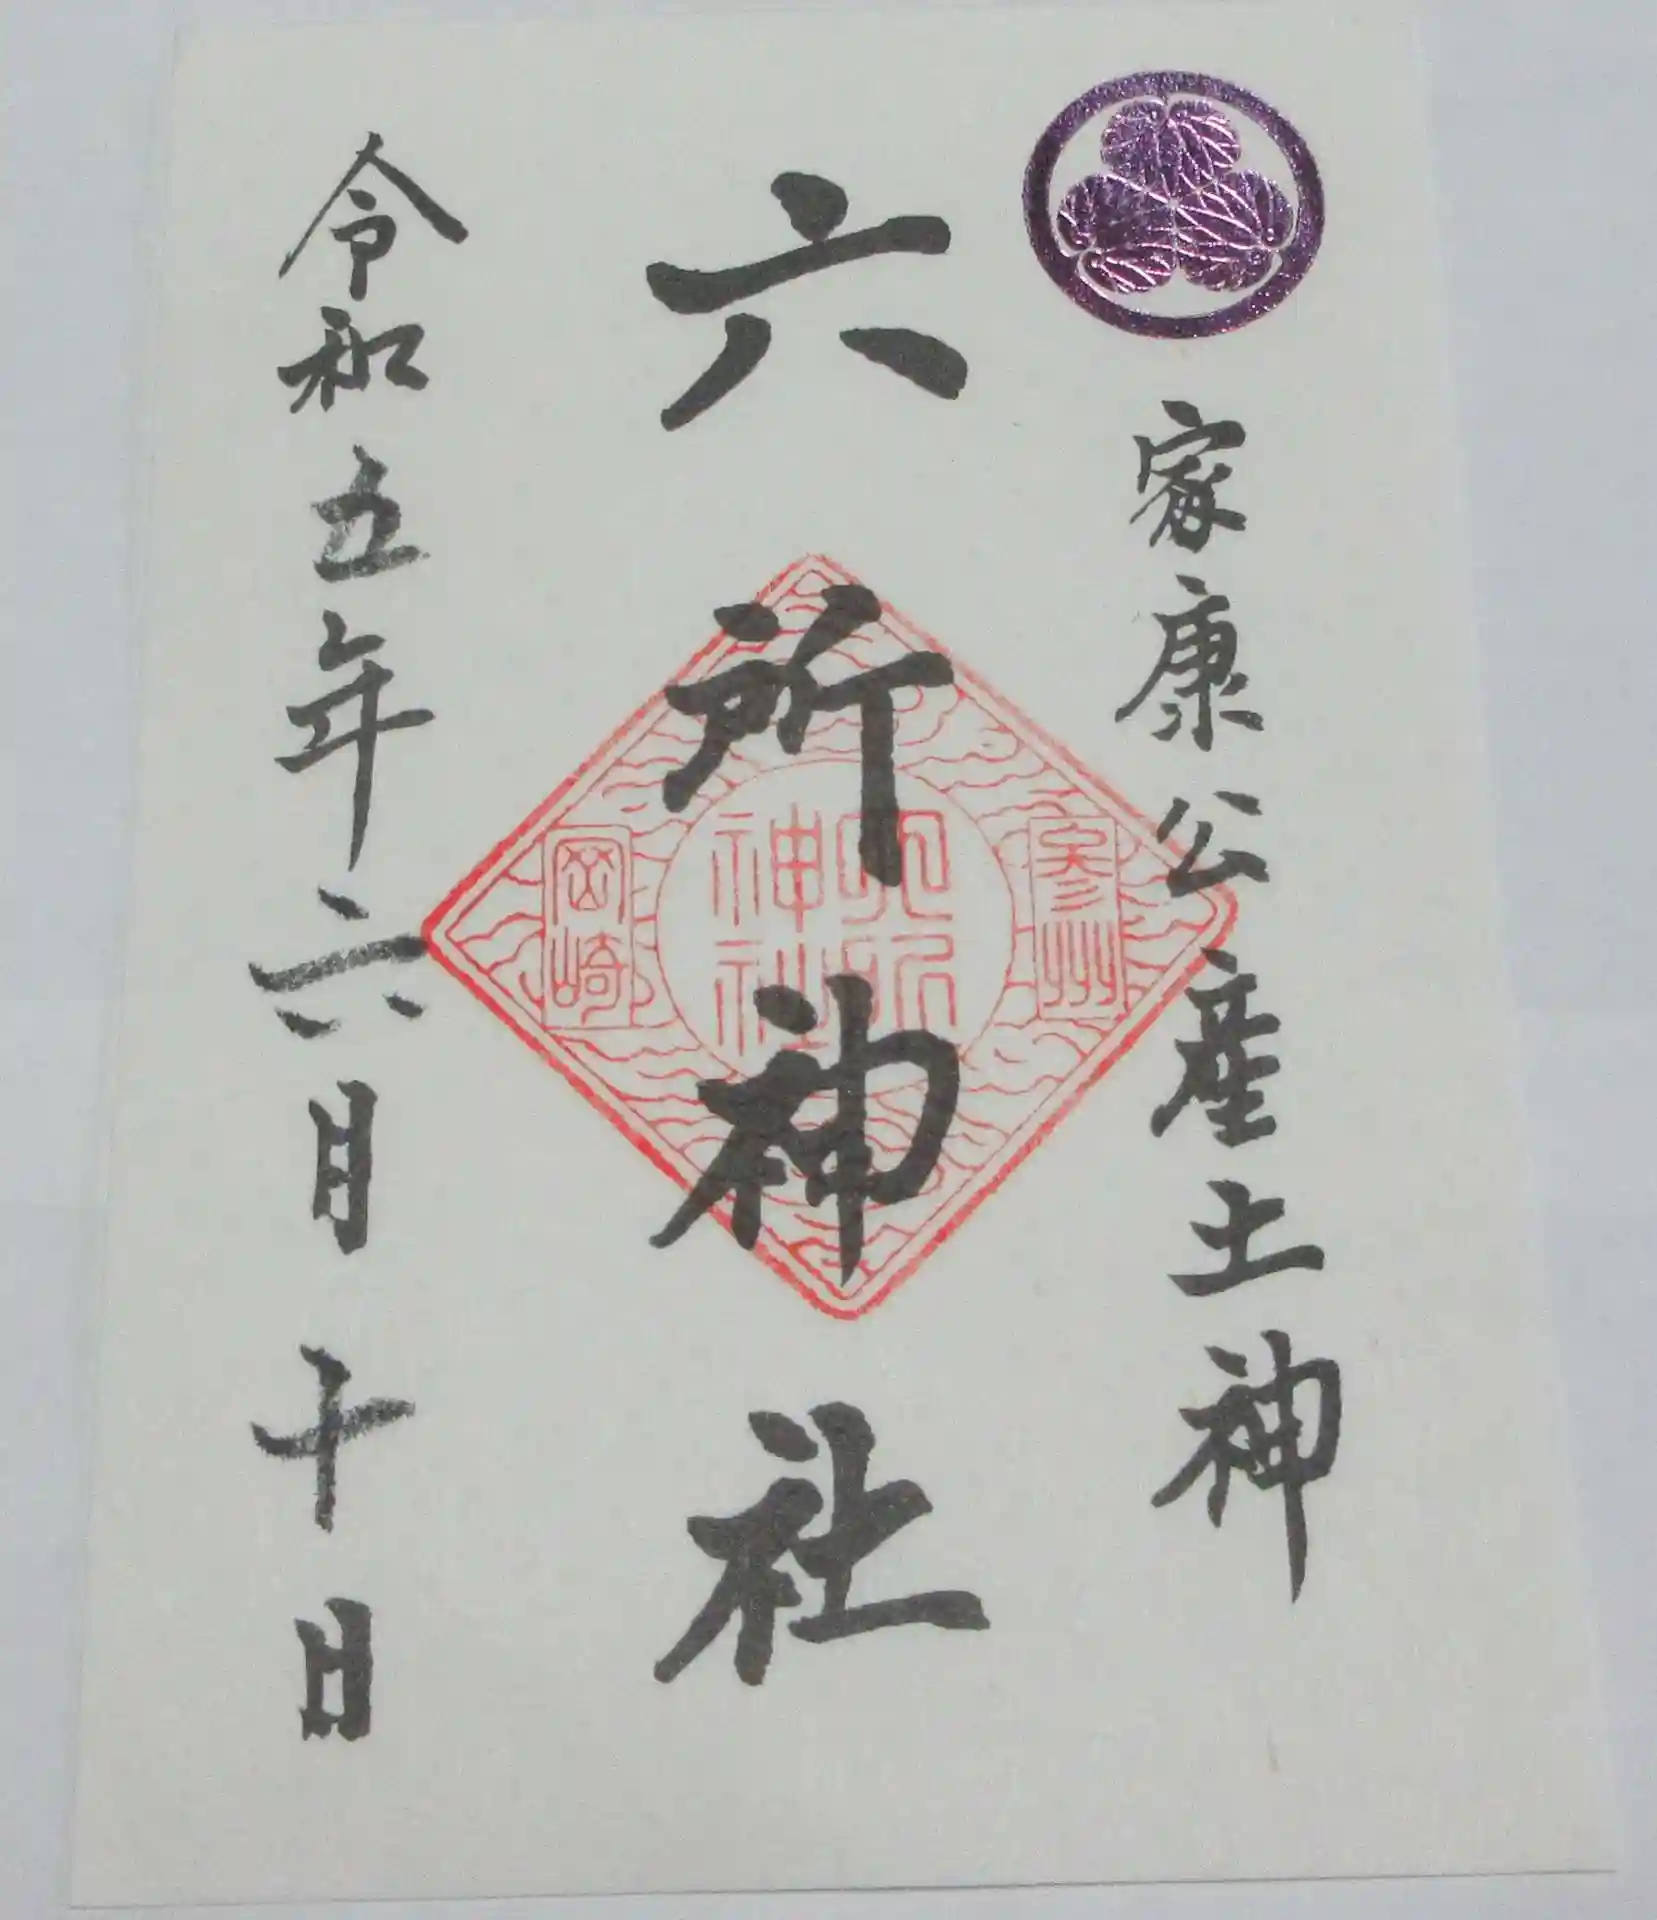 家康公産土神
六所神社
参州
六所神社
岡崎
令和五年六月十日